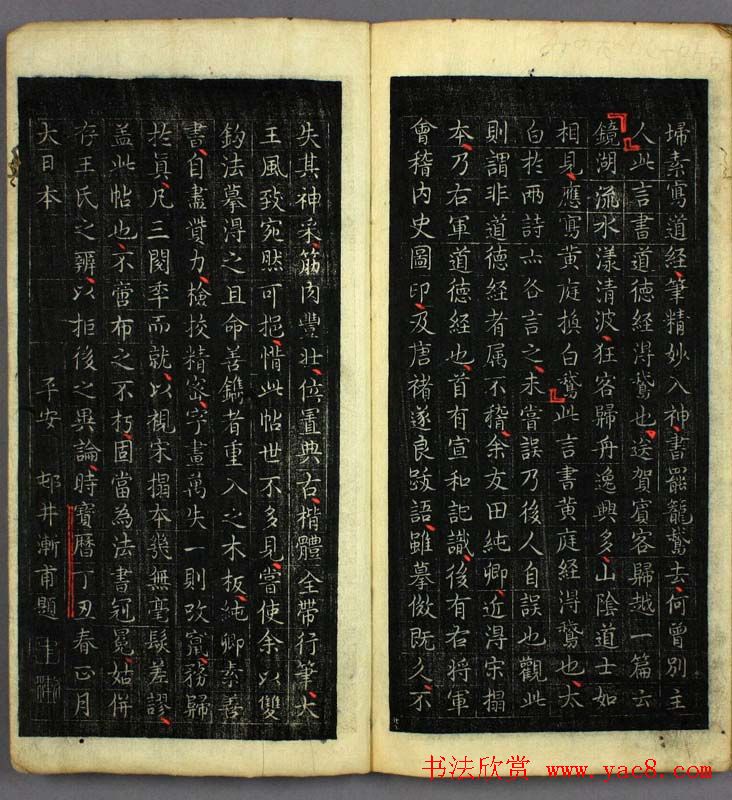 埽素寫道經筆精妙入神書罷籠鵞去何曾別主
人此言書道徳經淂鵞也送賀賔客歸越一篇云
鏡湖流水漾清波狂客歸舟逸興多山陰道士如
相見應寫黃庭換白鵞此言書黃庭經淂鵞也太
白於兩詩亦各言之未嘗誤乃後人自誤也觀此
則謂非道徳經者属不稽余友田純卿近淂宋搨
本乃右軍道徳經也首有宣和記識後有右將軍
會稽内史圖印及唐褚遂良跋語雖摹倣既久不
失其神采筋肉豐壯位置典古楷體全帶行筆大
王風致宛然可挹惜此帖世不多見嘗使余以雙
鈎法摹淂之且命善鐫者重入之木板純卿素善
書自盡貲力檢挍精宻字畫萬失一則改竄務歸
於真凡三閱季而就以視宋搨本幾無毫髮差謬
盖此帖也不啻布之不朽固當為法書冠冕姑併
存王氏之辨以拒後之異論時寶曆丁丑春正月
大日本 平安 邨井漸甫題
书法欣赏 www.yac8.com